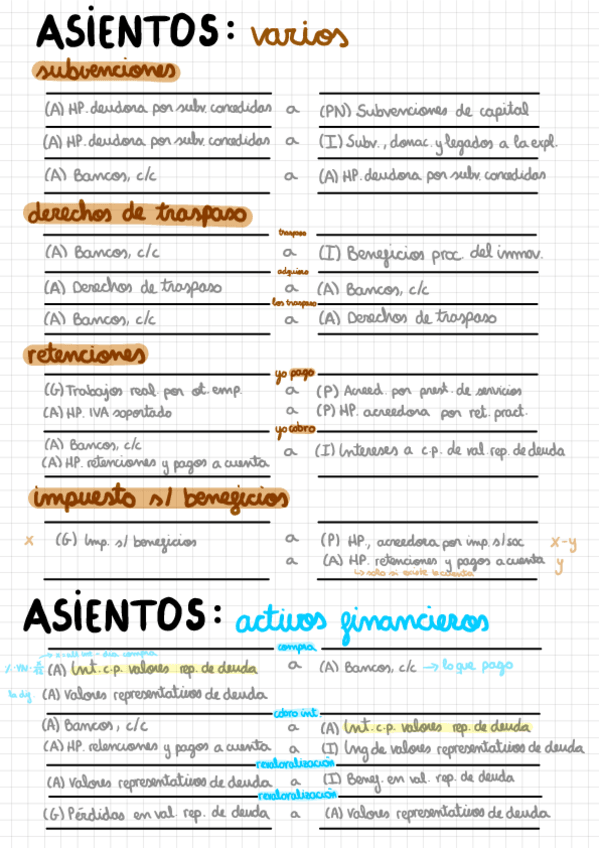 ASIENTOS: varios
subvenciones
(A) HP. deudora por subv. concedidas a (PN) Subvenciones de capital
(A) HP. deudora por subv. concedidas a (I) Subv., donac. y legados a la expl.
(A) Bancos, c/c a (A) HP. deudora por subv. concedidas
derechos de traspaso
traspaso
(A) Bancos, c/c a (I) Beneficios proc. del inmov.
adquiero
(A) Derechos de traspaso a (A) Bancos, c/c
los traspaso
(A) Bancos, c/c a (A) Derechos de traspaso
retenciones
yo pago
(G) Trabajos real. por ot. emp. a (P) Acreed. por prest. de servicios
(A) HP. IVA soportado a (P) HP. acreedora por ret. pract.
yo cobro
(A) Bancos, c/c a (I) Intereses a c.p. de val. rep. de deuda
(A) HP. retenciones y pagos a cuenta
impuesto s/ beneficios
x (G) Imp. s/ beneficios a (P) HP., acreedora por imp. s/soc x-y
a (A) HP. retenciones y pagos a cuenta y
↳ solo si existe la cuenta
ASIENTOS: activos financieros
compra
(A) Int. c.p. valores rep. de deuda a (A) Bancos, c/c → lo que pago
la dif. (A) Valores representativos de deuda
cobro int
(A) Bancos, c/c a (A) Int. c.p. valores rep. de deuda
(A) HP. retenciones y pagos a cuenta a (I) Ing de valores representativos de deuda
revaloralización
(A) Valores representativos de deuda a (I) Benef. en val. rep. de deuda
revaloralización
(G) Pérdidas en val. rep. de deuda a (A) Valores representativos de deuda